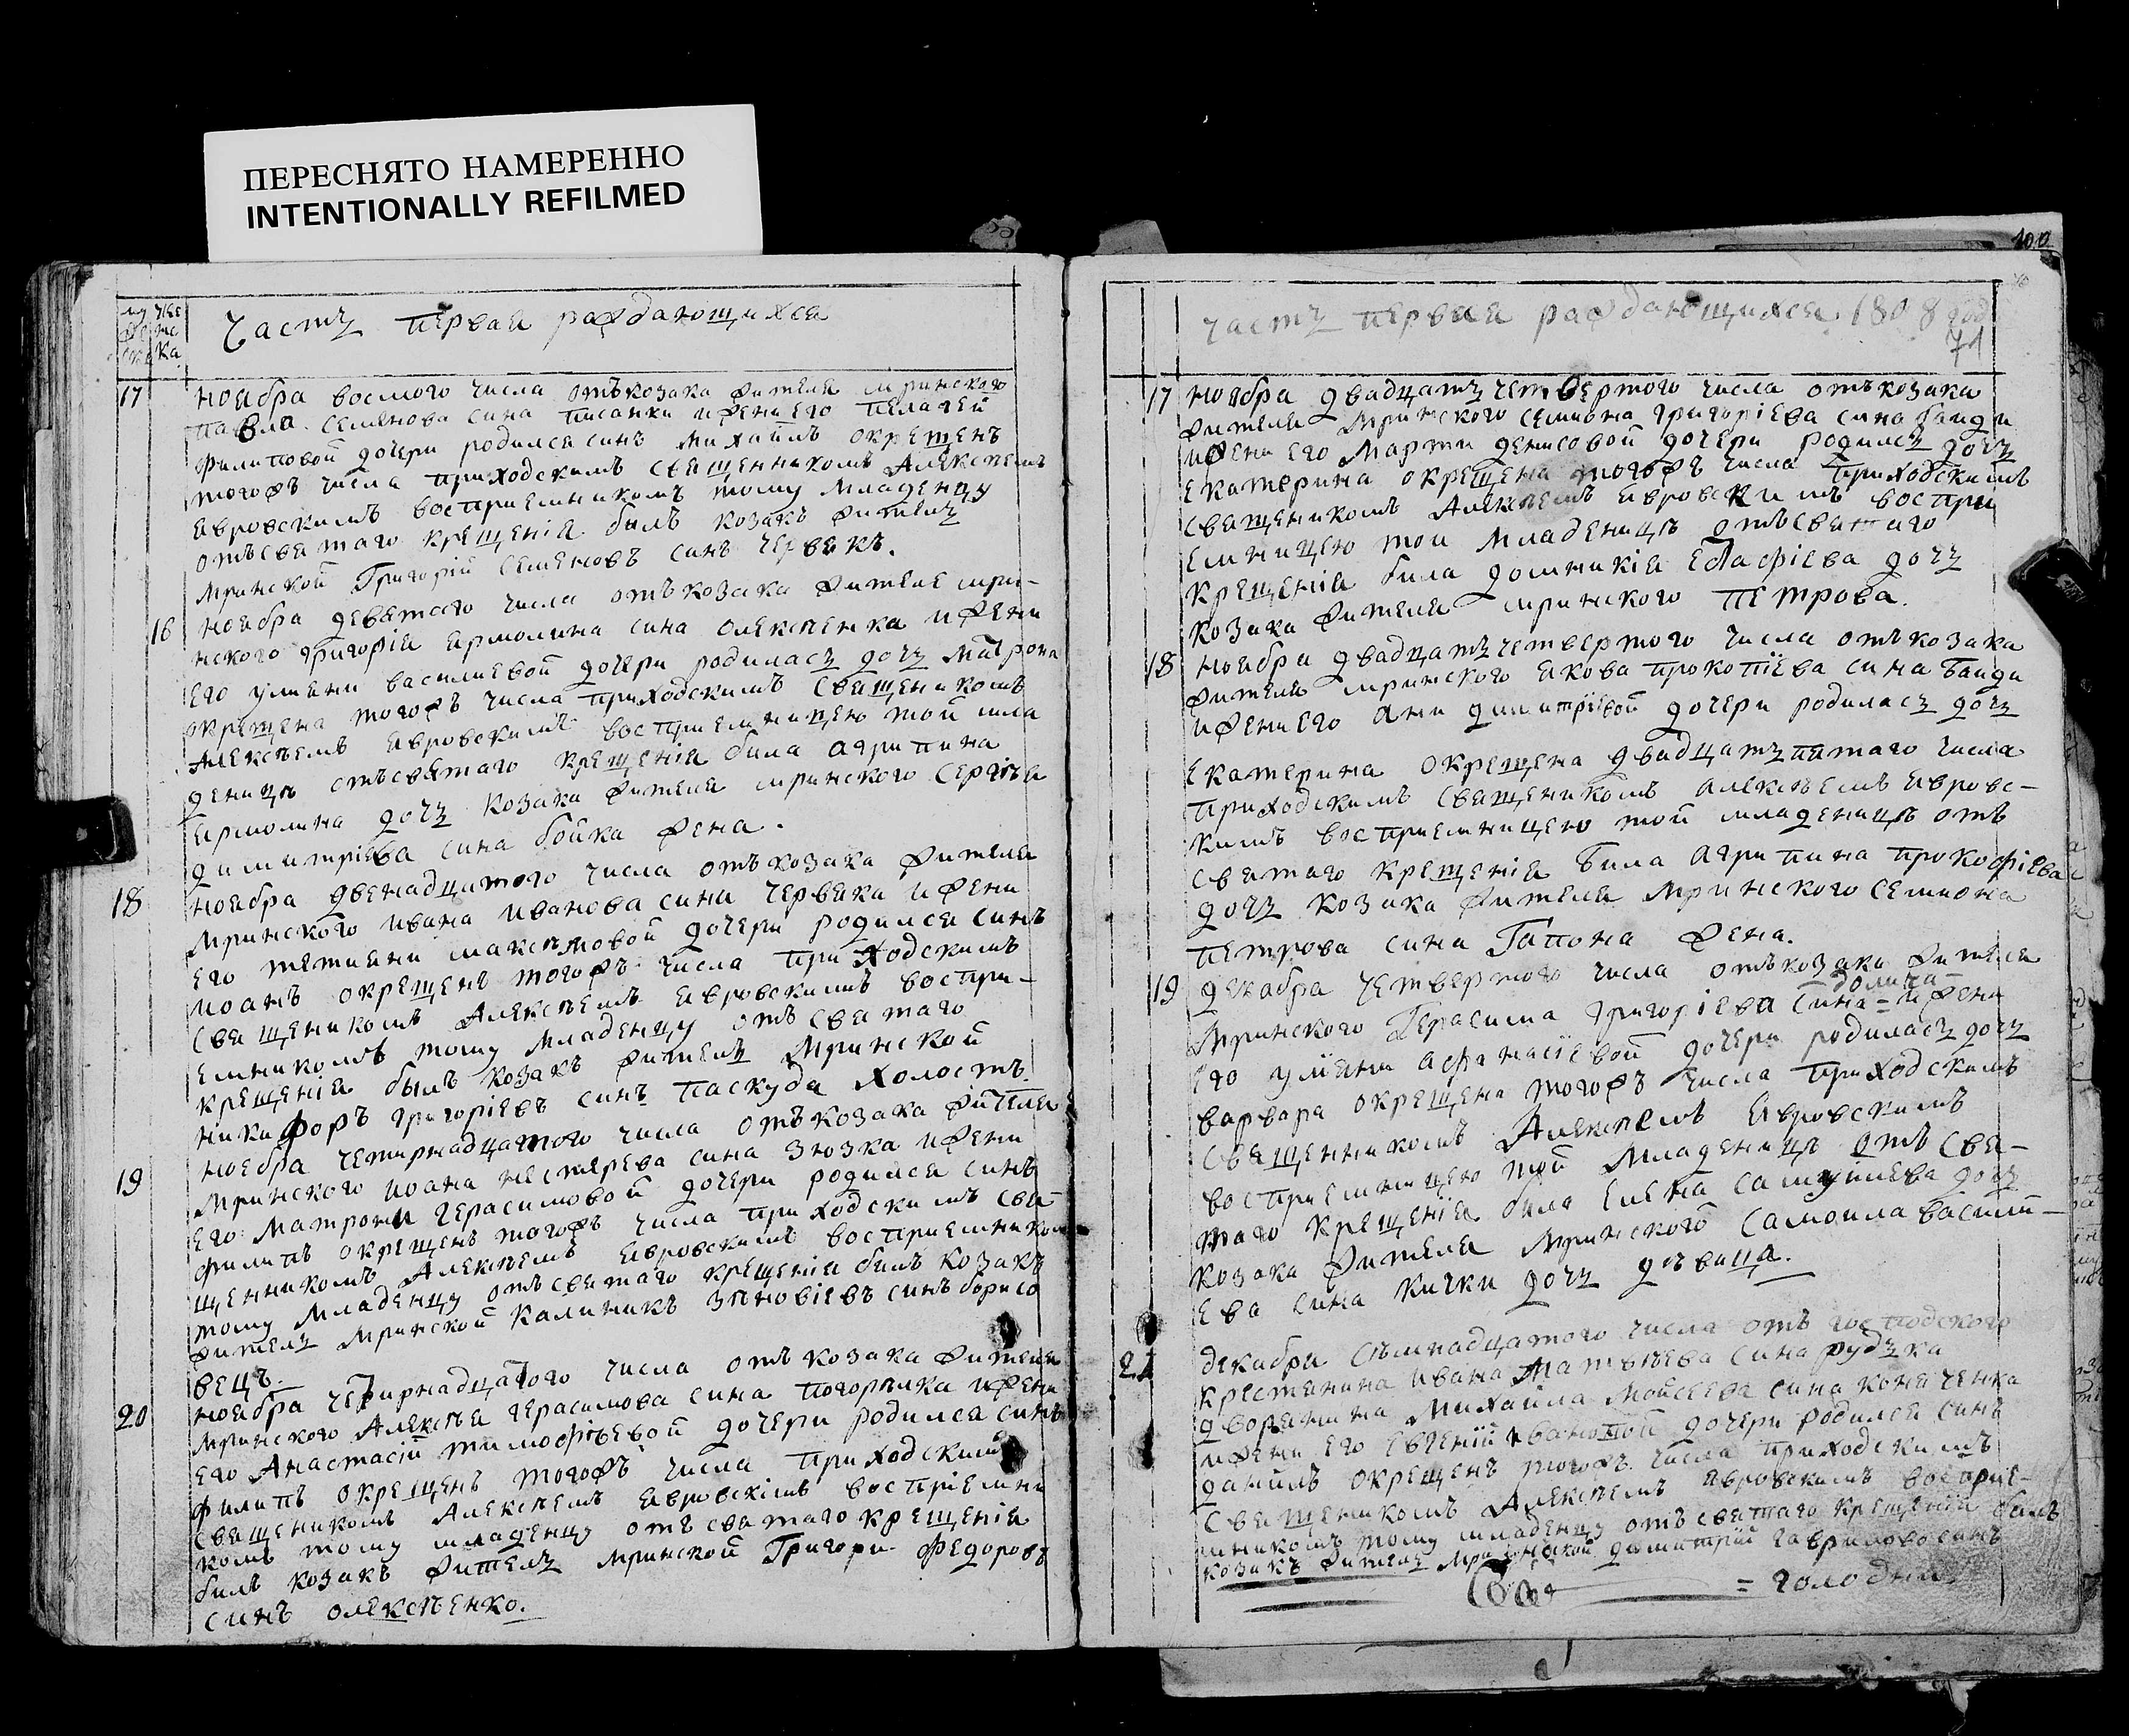 ПЕРЕСНЯТО НАМЕРЕННО
INTENTIONALLY REFILMED
100
Часть первая раждающихся
17
ноября восмого числа отъ козака жителя мринского
павла семенова сина писанки и жени его пелагеи
филиповой дочери родился синъ михаилъ окрещенъ
тогожъ числа приходскимъ священникомъ Алексѣемъ
Явровскимъ восприемникомъ тому младенцу
отъ святаго крещенія былъ козакъ житель
мринской Григорій Семеновъ синъ червякъ.
16
ноября девятого числа отъ козака жителя мри-
нского григорія ермолина сина олексѣенка и жени
его уляни василиевой дочери родилась дочь матрона
окрещена тогожъ числа приходскимъ священикомъ
Алексѣемъ Явровскимъ восприемницею той мла
деницѣ отъ святаго крещенія била агрипина
ермолина дочь козака жителя мринского Сергѣя
димитріева сина бойка жена.
18
ноября двенадцятого числа отъ козака жителя
мринского ивана иванова сина червяка и жени
его тетияни максимовой дочери родился синъ
иоанъ окрещенъ тогожъ числа приходскимъ
священикомъ Алексѣемъ Явровскимъ воспри-
емникомъ тому младенцу отъ святаго
крещенія былъ козакъ житель мринской
никифоръ григоріевъ синъ паскуда холостъ.
19
ноября четирнадцатого числа отъ козака жителя
мринского иоана нестерева сина зюзка и жени
его матрони герасимовой дочери родился синъ
филипъ окрещенъ тогожъ числа приходскимъ свя
щенникомъ Алексѣемъ Явровскимъ восприемникомъ
тому младенцу отъ святаго крещенія билъ козакъ
житель мринской калиникъ зѣновіевъ синъ борисо
вецъ.
20
ноября четирнадцатого числа отъ козака жителя
мринского Алексѣя герасимова сина погорѣлка и жени
его Анастасій тимофѣевой дочери родился синъ
филипъ окрещенъ тогожъ числа приходскимъ
священикомъ Алексѣемъ Явровскимъ восприемни
комъ тому младенцу отъ святаго крещенія
билъ козакъ житель мринской Григори Федоровъ
синъ олексѣенко.
часть первая раждающихся 1808 год
71
17
ноября двадцать четвертого числа отъ козака
жителя мринского семиона григоріева сина банди
и жени его марти денисовой дочери родилась дочь
екатерина окрещена тогожъ числа приходскимъ
священикомъ Алексѣемъ Явровскимъ воспри
емницею той младеницѣ отъ святаго
крещенія била домникія дочь
козака жителя мринского петрова.
18
ноября двадцать четвертого числа отъ козака
жителя мринского якова прокопіева сина банди
и жени его ани димитріевой дочери родилась дочь
екатерина окрещена двадцать пятаго числа
приходскимъ священикомъ алексѣемъ Явровс-
кимъ восприемницею той младеницѣ отъ
святаго крещенія била агрипина прокофіева
дочь козака жителя мринского семиона
петрова сина Гапона жена.
19
декабра четвертого числа отъ козака жителя
мринского Герасима григоріева сина = и жени
его уліяни афанасіевой дочери родилась дочь
варвара окрещена тогожъ числа приходскимъ
священникомъ Алексѣемъ Явровскимъ
восприемницею той младеницѣ отъ свя-
таго крещенія била елена самуилева дочь
козака жителя мринского самоила василі-
ева сина кички дочь дѣвица.
21
декабря сѣмнадцатого числа отъ господского
крестянина ивана матвѣева сина рудька
дворянина михаила мойсеева сина
и жени его евгеніи дочери родился синъ
данилъ окрещенъ тогожъ числа приходскимъ
священикомъ Алексѣемъ Явровскимъ восприе-
мникомъ тому младенцу отъ святаго крещенія билъ
козакъ житель мринской димитрій гавриловъ синъ
= голодній